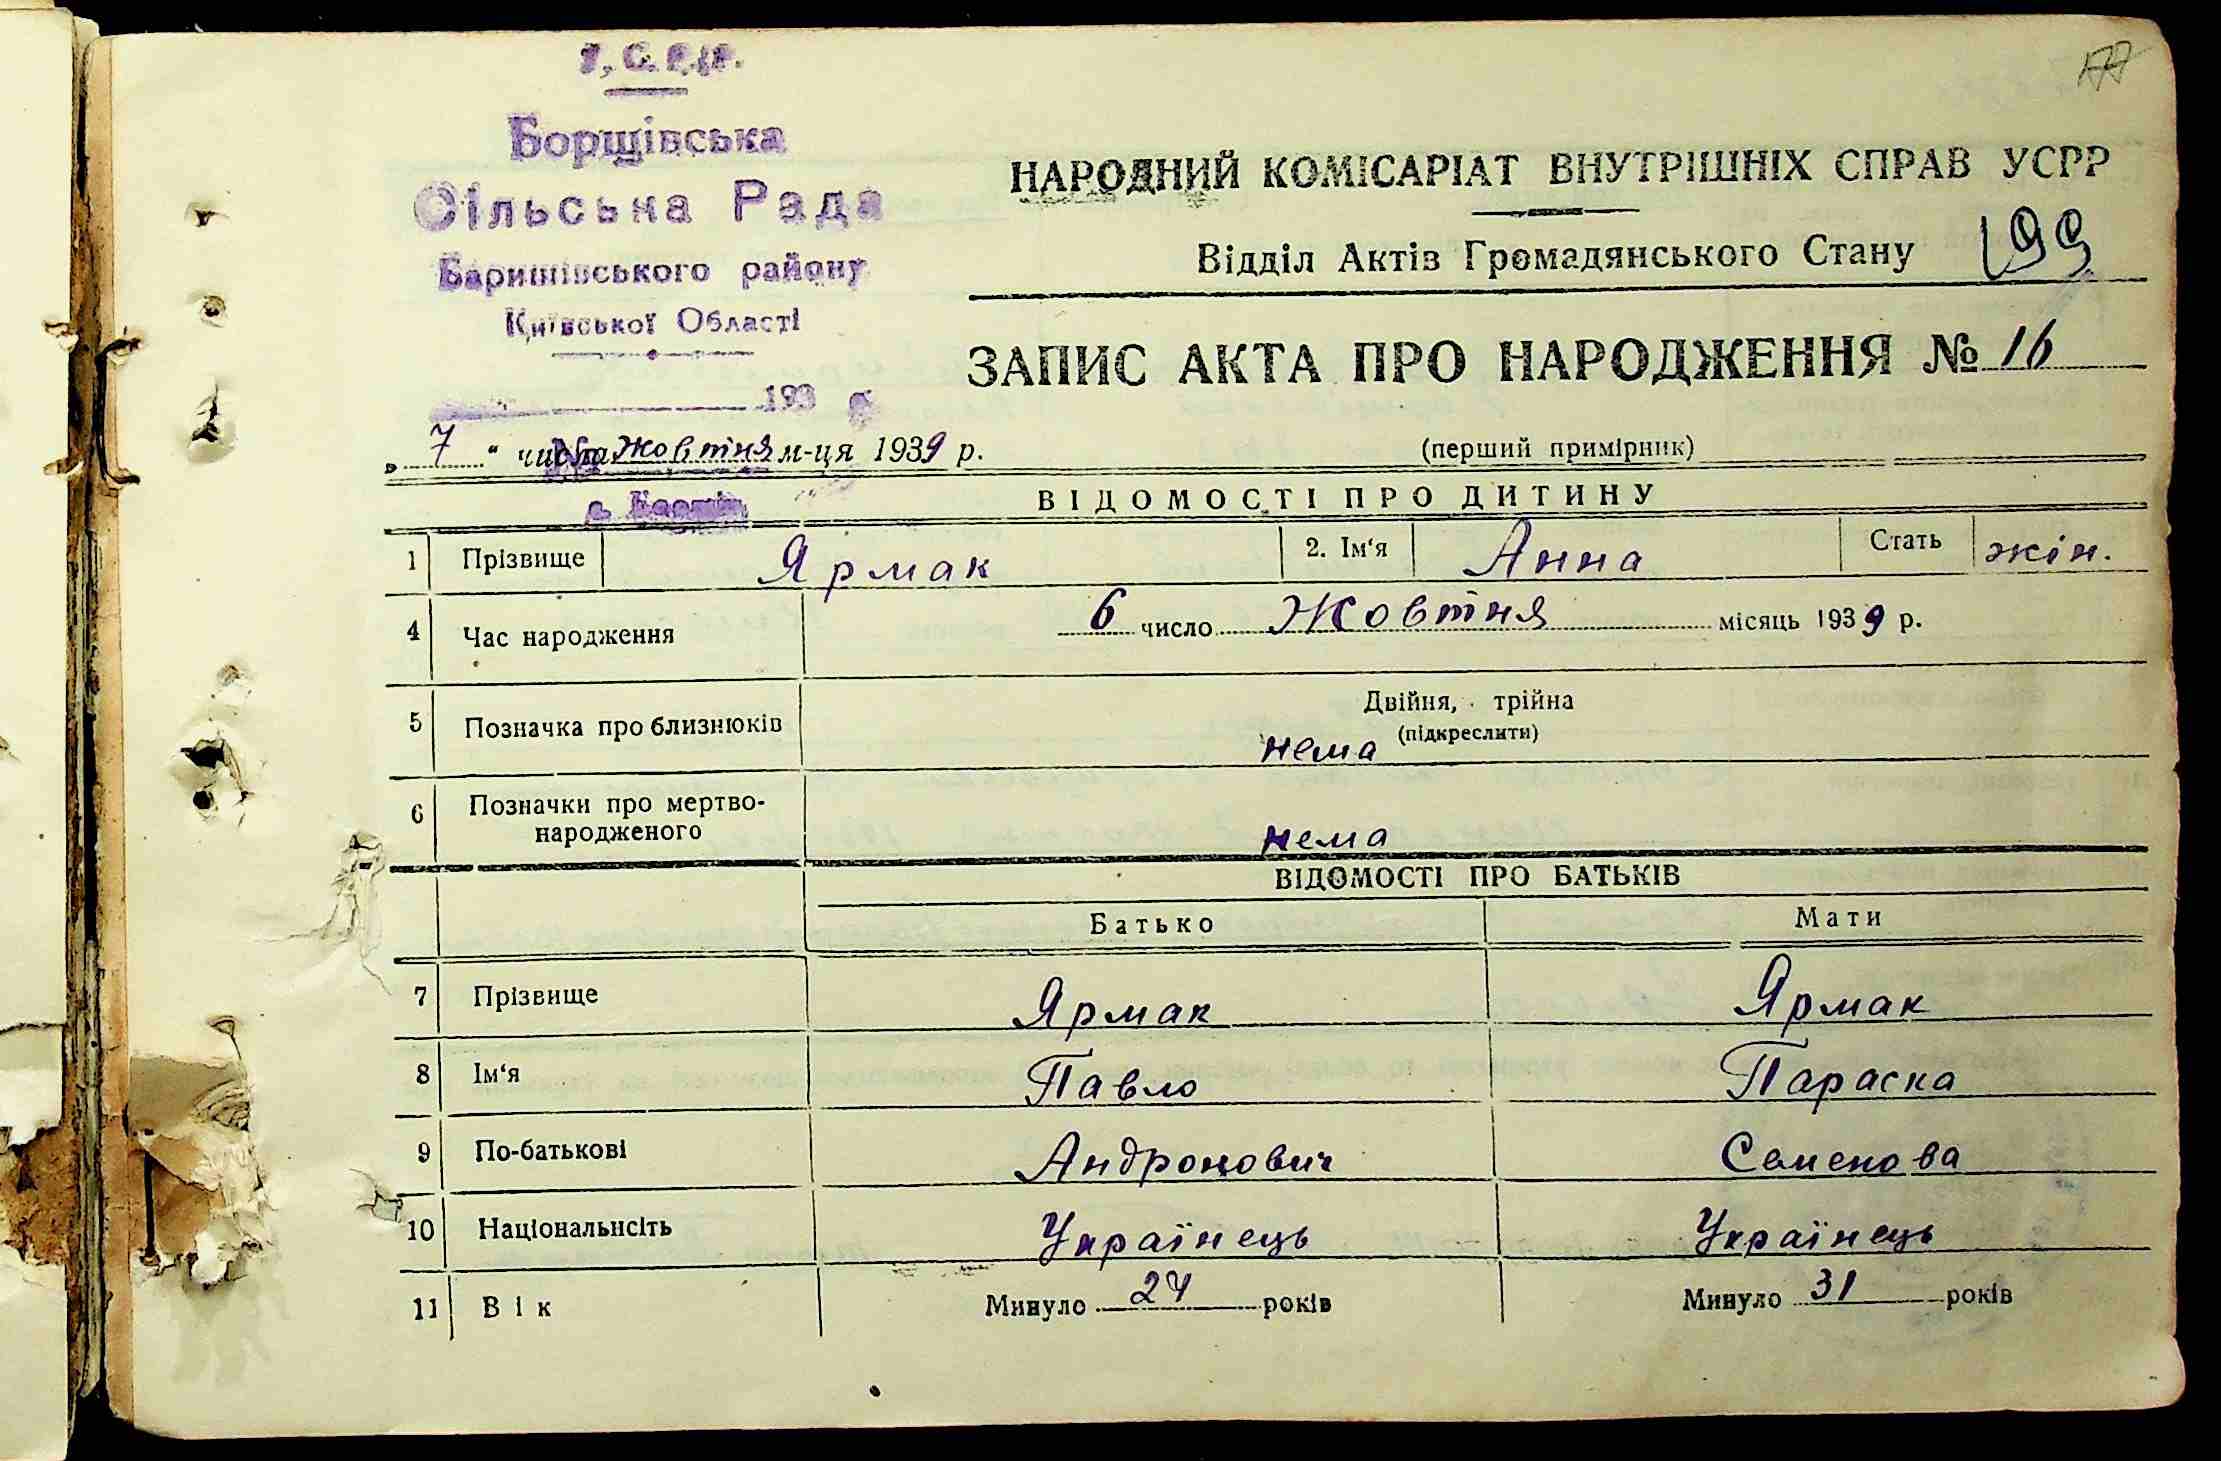 У. С. Р. Р.
Борщівська
Сільська Рада
Баришівського району
Київської Області
193 р.
177
НАРОДНИЙ КОМІСАРІАТ ВНУТРІШНІХ СПРАВ УСРР
Відділ Актів Громадянського Стану 199
ЗАПИС АКТА ПРО НАРОДЖЕННЯ № 16
„ 7 “ числа Жовтня м-ця 1939 р.
(перший примірник)
ВІДОМОСТІ ПРО ДИТИНУ
1 Прізвище Ярмак 2. Ім‘я Анна Стать жін.
4 Час народження 6 число Жовтня місяць 1939 р.
5 Позначка про близнюків Двійня, трійна
(підкреслити)
нема
6 Позначки про мертво-
народженого нема
ВІДОМОСТІ ПРО БАТЬКІВ
Батько Мати
7 Прізвище Ярмак Ярмак
8 Ім‘я Павло Параска
9 По-батькові Андронович Семенова
10 Національнсіть Українець Українець
11 Вік Минуло 24 років Минуло 31 років